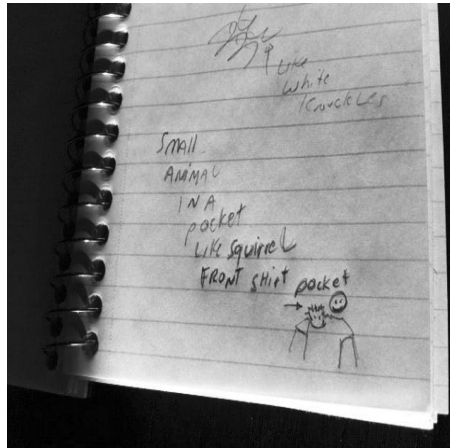 Like
white
knuckles
SMALL
ANIMAL
IN A
pocket
LIKE squirrel
FRONT shirt pocket